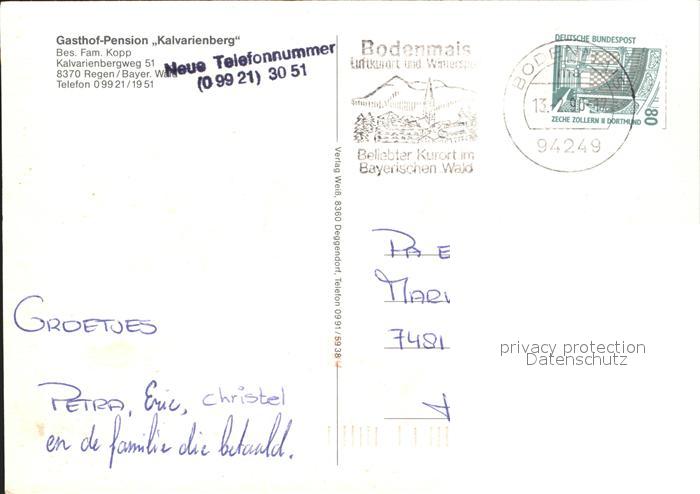 Gasthof-Pension „Kalvarienberg"
Bes. Fam. Kopp
Kalvarienbergweg 51
8370 Regen/Bayer. Wald
Telefon 0 99 21/19 51
Neue Telefonnummer
(0 99 21) 30 51
Bodenmais
Luftkurort und Winterspo
Beliebter Kurort im
Bayerischen Wald
BODENM
ma
94249
DEUTSCHE BUNDESPOST
80
ZECHE ZOLLERN II DORTMUND
Verlag Weiß, 8360 Deggendorf, Telefon 09 91/59 38
PA E
MARI
7481
privacy protection
Datenschutz
GROETJES
PETRA, Eric, christel
en de familie die betaald.